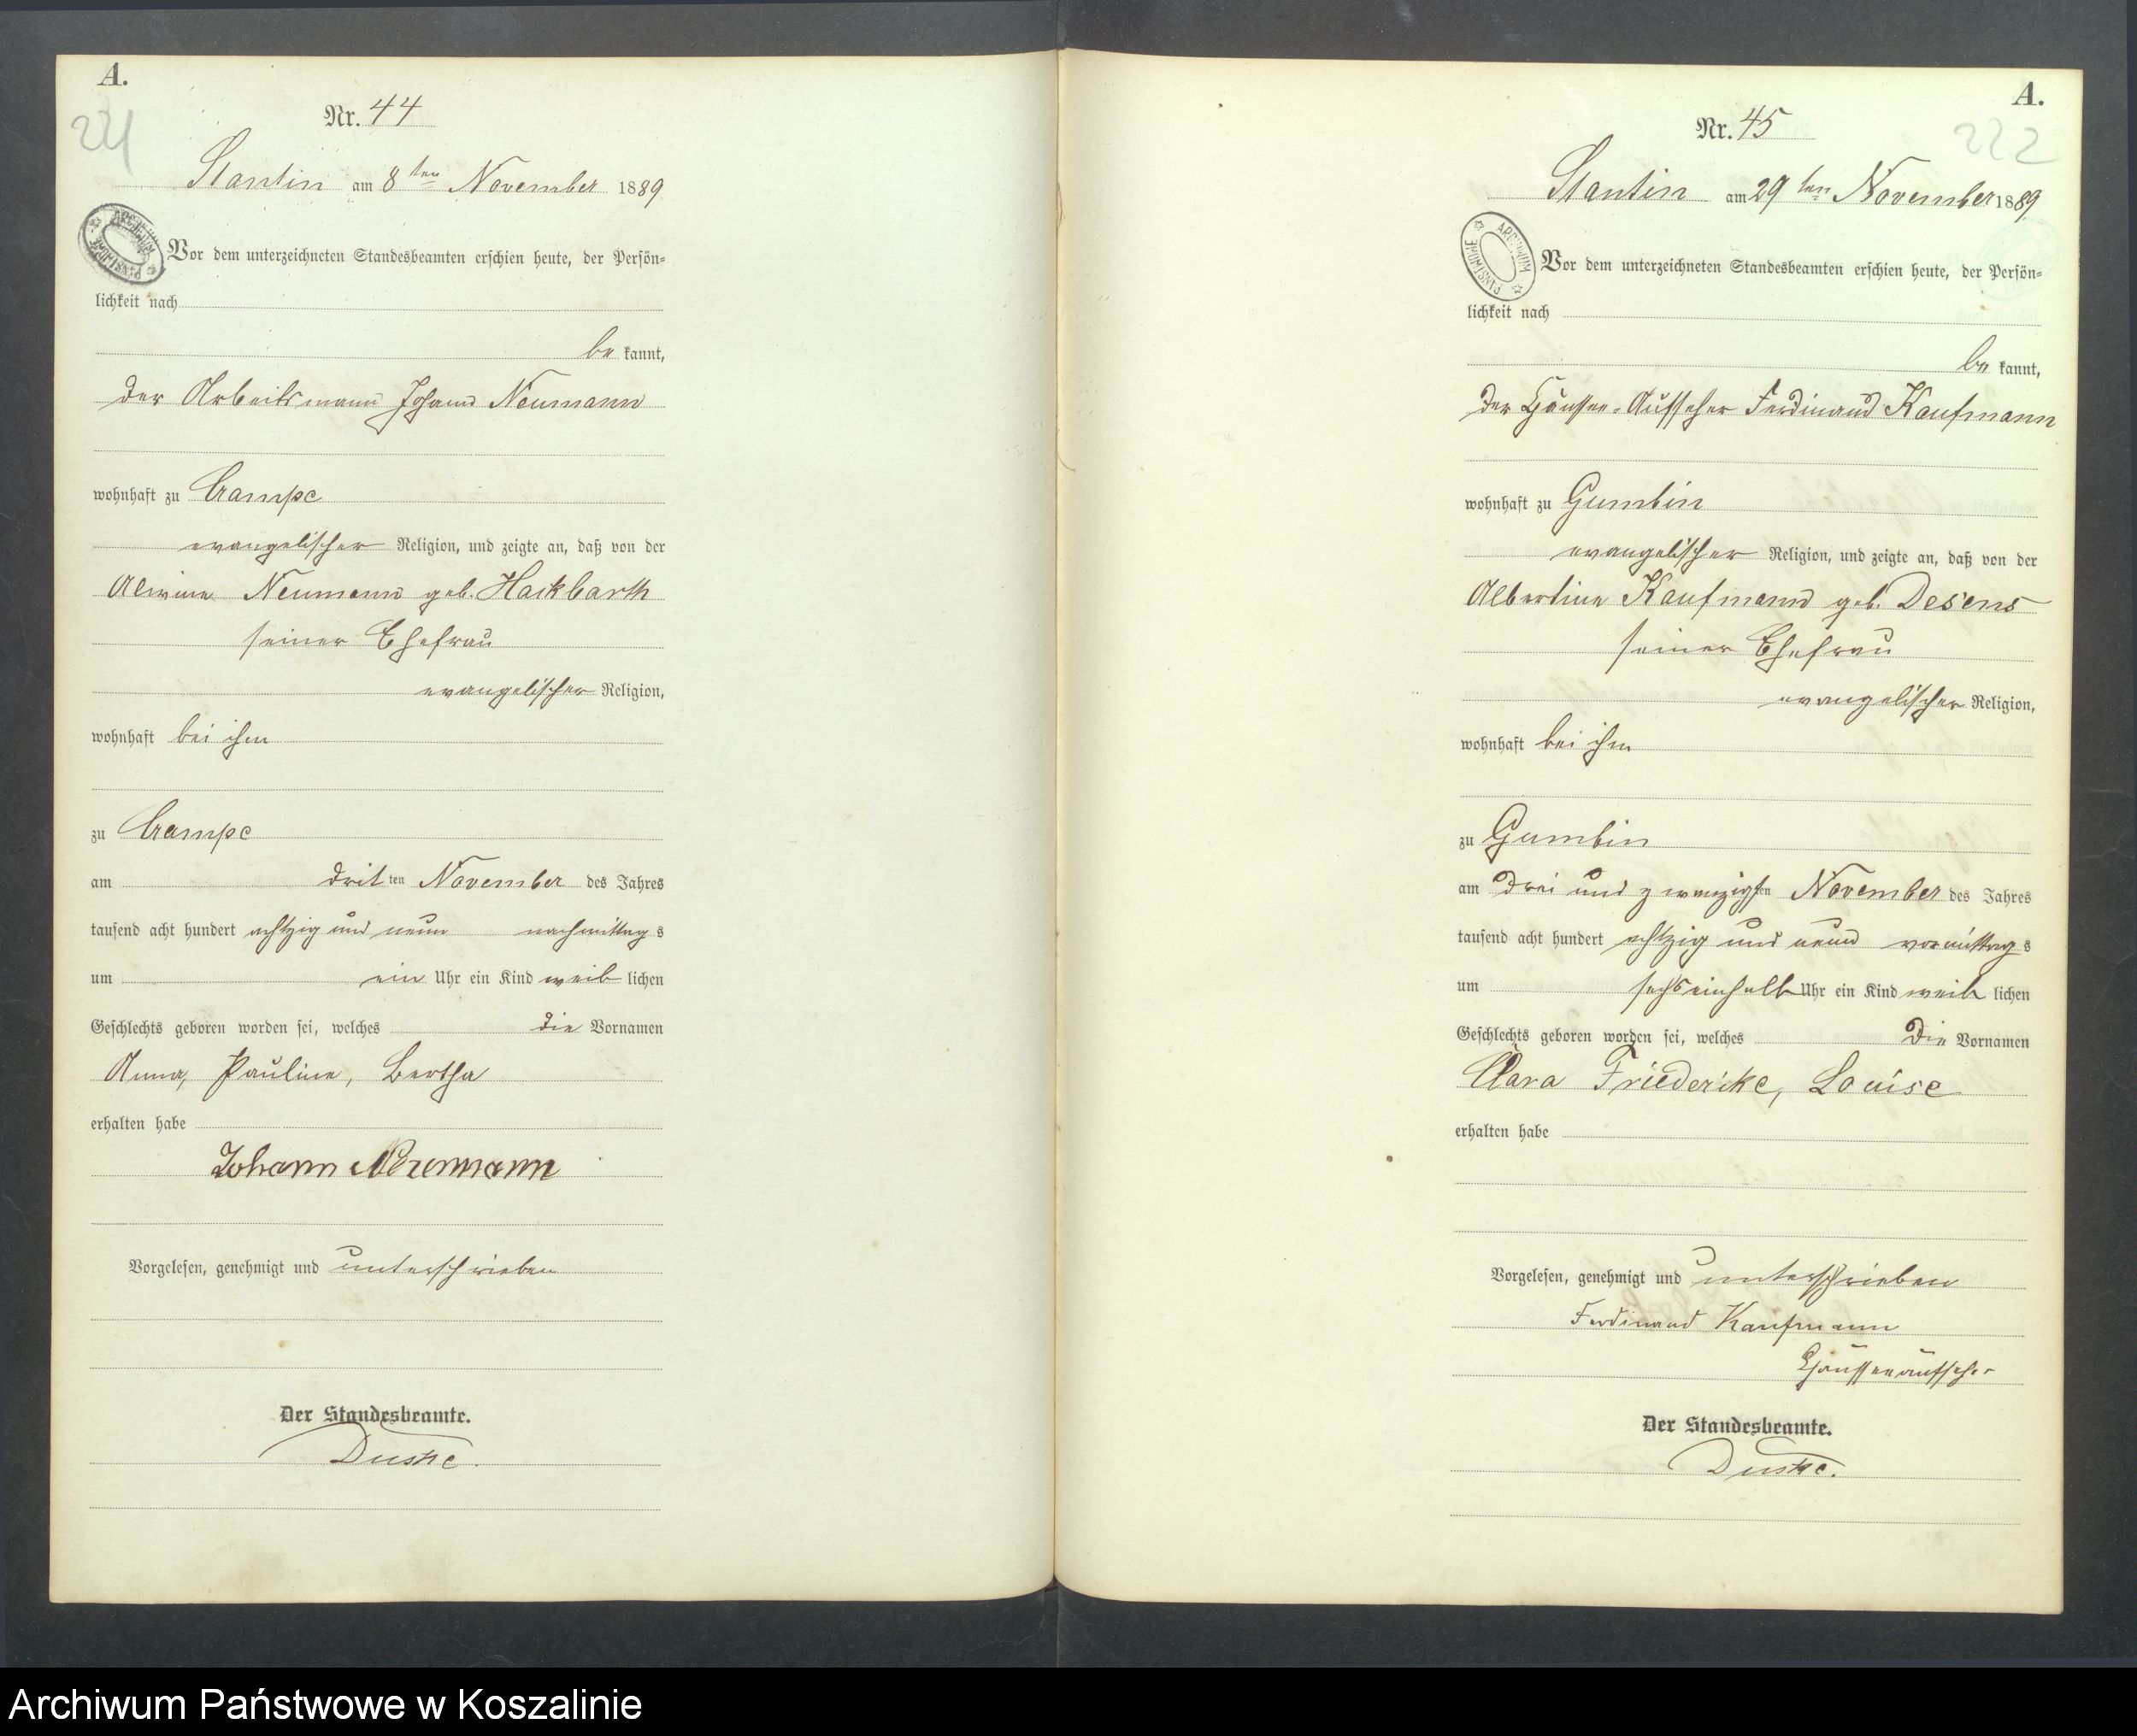 A.
221
Nr. 44
Stantin am 8ten November 1889
ARCHIWUM PAŃSTWOWE
Vor dem unterzeichneten Standesbeamten erschien heute, der Persön=
lichkeit nach
be kannt,
der Arbeitsmann Johann Neumann
wohnhaft zu Campe
evangelischer Religion, und zeigte an, daß von der
Alwine Neumann geb. Hackbarth
seiner Ehefrau
evangelischer Religion,
wohnhaft bei ihm
zu Campe
am dritten November des Jahres
tausend acht hundert achtzig und neun nachmittags
um ein Uhr ein Kind weiblichen
Geschlechts geboren worden sei, welches die Vornamen
Anna, Pauline, Bertha
erhalten habe
Johann Neumann
Vorgelesen, genehmigt und unterschrieben
Der Standesbeamte.
Duske.
A.
222
Nr. 45
Stantin am 29ten November 1889
ARCHIWUM PAŃSTWOWE
Vor dem unterzeichneten Standesbeamten erschien heute, der Persön=
lichkeit nach
be kannt,
der Chaussee-Aufseher Ferdinand Kaufmann
wohnhaft zu Gumbin
evangelischer Religion, und zeigte an, daß von der
Albertine Kaufmann geb. Desens
seiner Ehefrau
evangelischer Religion,
wohnhaft bei ihm
zu Gumbin
am drei und zwanzigsten November des Jahres
tausend acht hundert achtzig und neun vormittags
um sechseinhalb Uhr ein Kind weiblichen
Geschlechts geboren worden sei, welches die Vornamen
Clara Friederike, Louise
erhalten habe
Vorgelesen, genehmigt und unterschrieben
Ferdinand Kaufmann
Chausseeaufseher
Der Standesbeamte.
Duske.
Archiwum Państwowe w Koszalinie